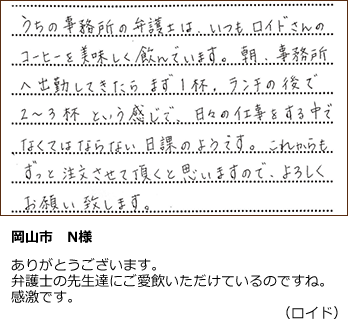 うちの事務所の弁護士は、いつもロイドさんの
コーヒーを美味しく飲んでいます。朝、事務所
へ出勤してきたらまず1杯、ランチの後で
2~3杯という感じで、日々の仕事をする中で
なくてはならない日課のようです。これからも
ずっと注文させて頂くと思いますので、よろしく
お願い致します。
岡山市 N様
ありがとうございます。
弁護士の先生達にご愛飲いただけているのですね。
感激です。
(ロイド)